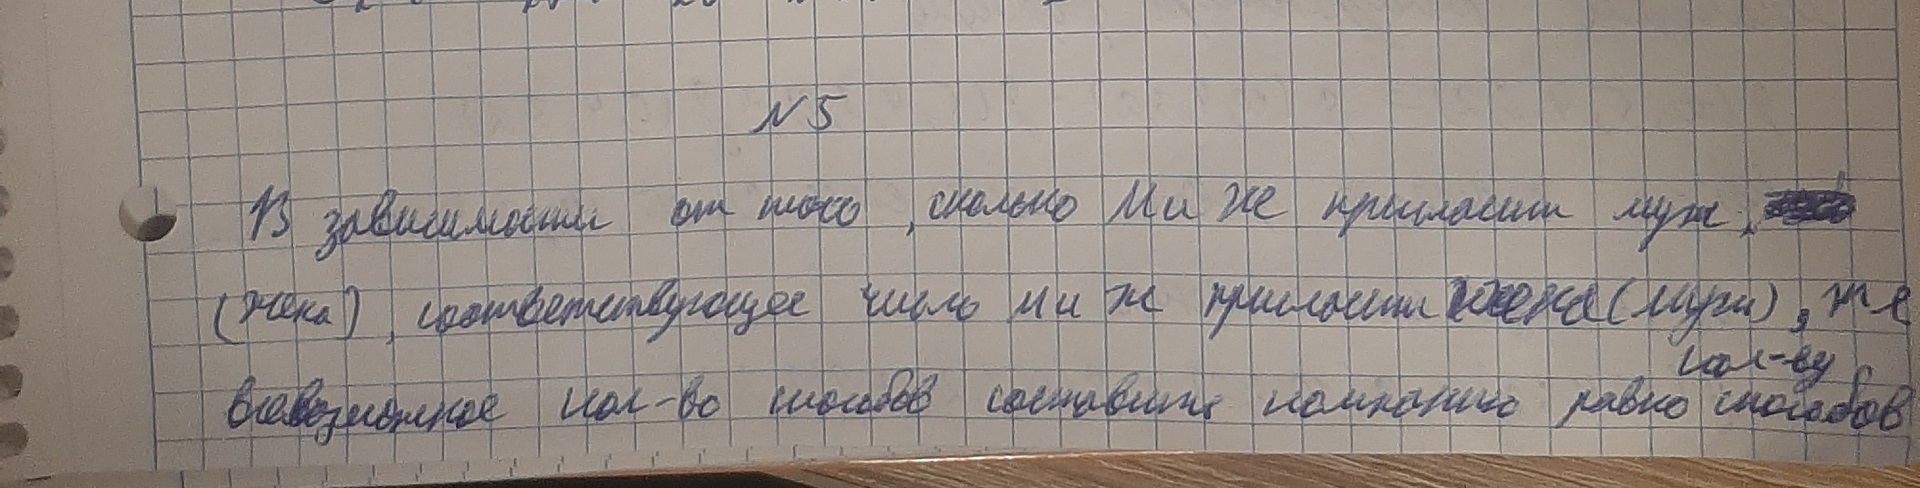 N 5
В зависимости от того, сколько М и Ж пригласит муж,
(жена), соответствующее число М и Ж пригласит жена (муж), т.е
всевозможное кол-во способов составить компанию равно кол-ву способов